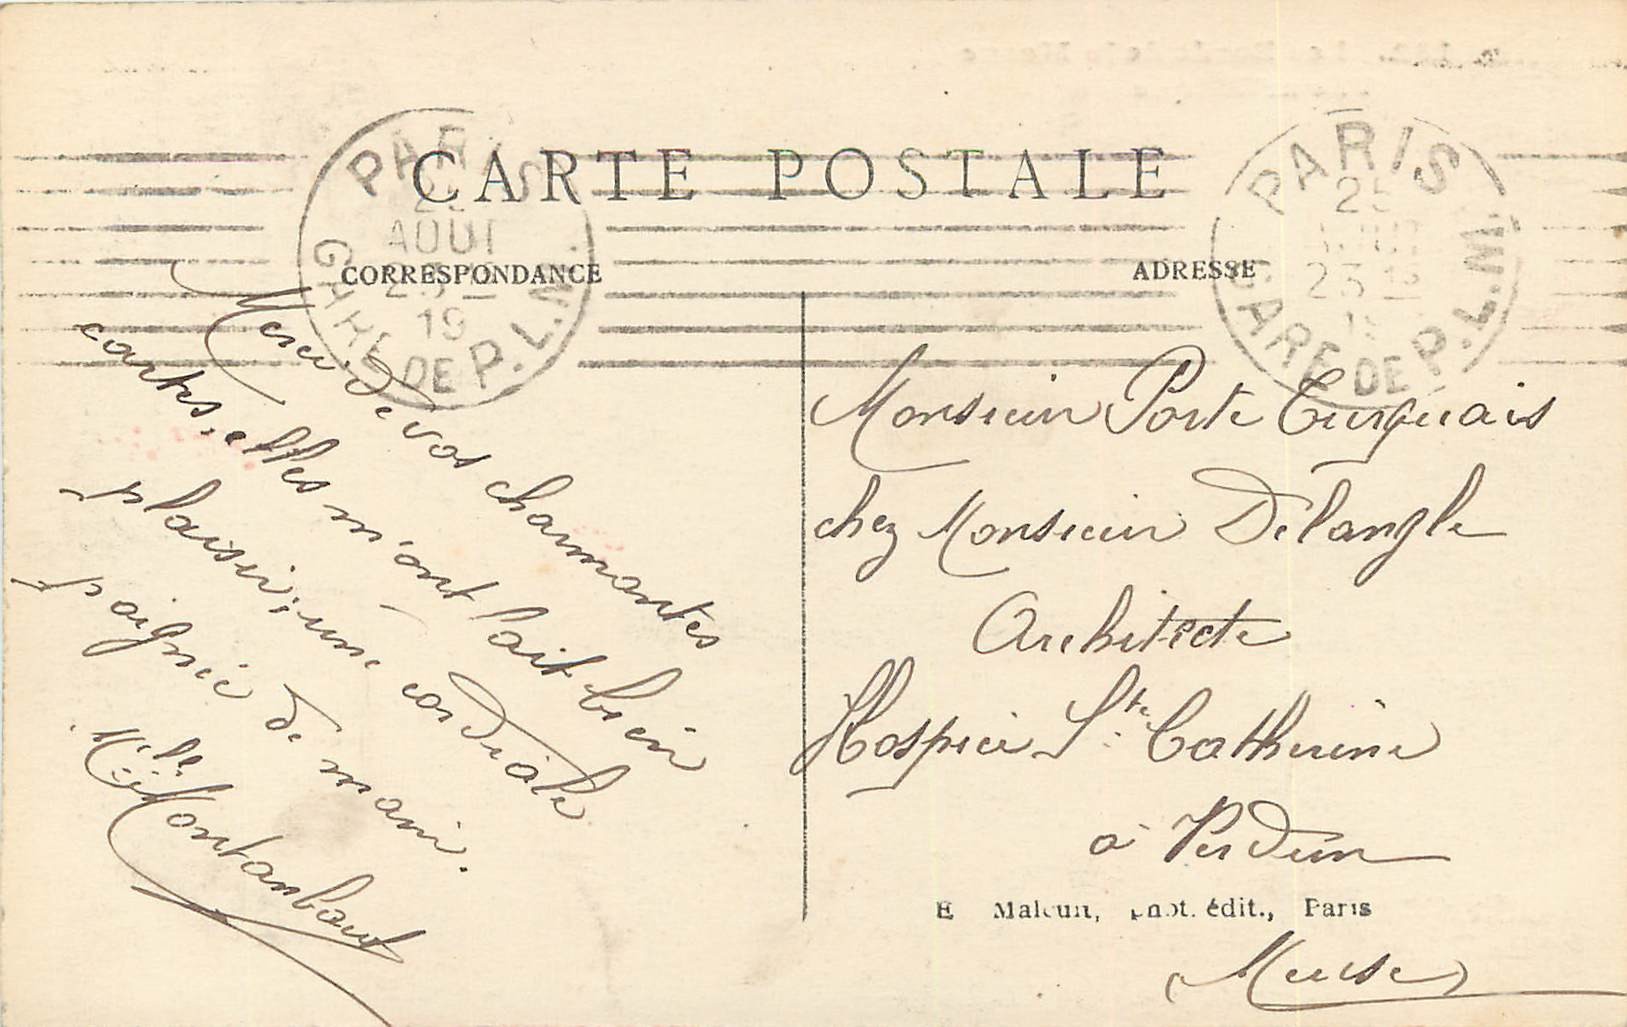 CARTE POSTALE
CORRESPONDANCE
ADRESSE
PARIS
25
AOUT
23
19
GARE DE P.L.M.
PARIS
25
23
GARE DE P.L.M.
Merci de vos charmantes
cartes, elles m'ont fait bien
plaisir; une cordiale
poignée de main.
Mlle Montanbaut
Monsieur Porte Turquais
chez Monsieur Delangle
Architecte
Hospice Ste Catherine
à Verdun
E Malcuit, phot. édit., Paris
(Meuse)